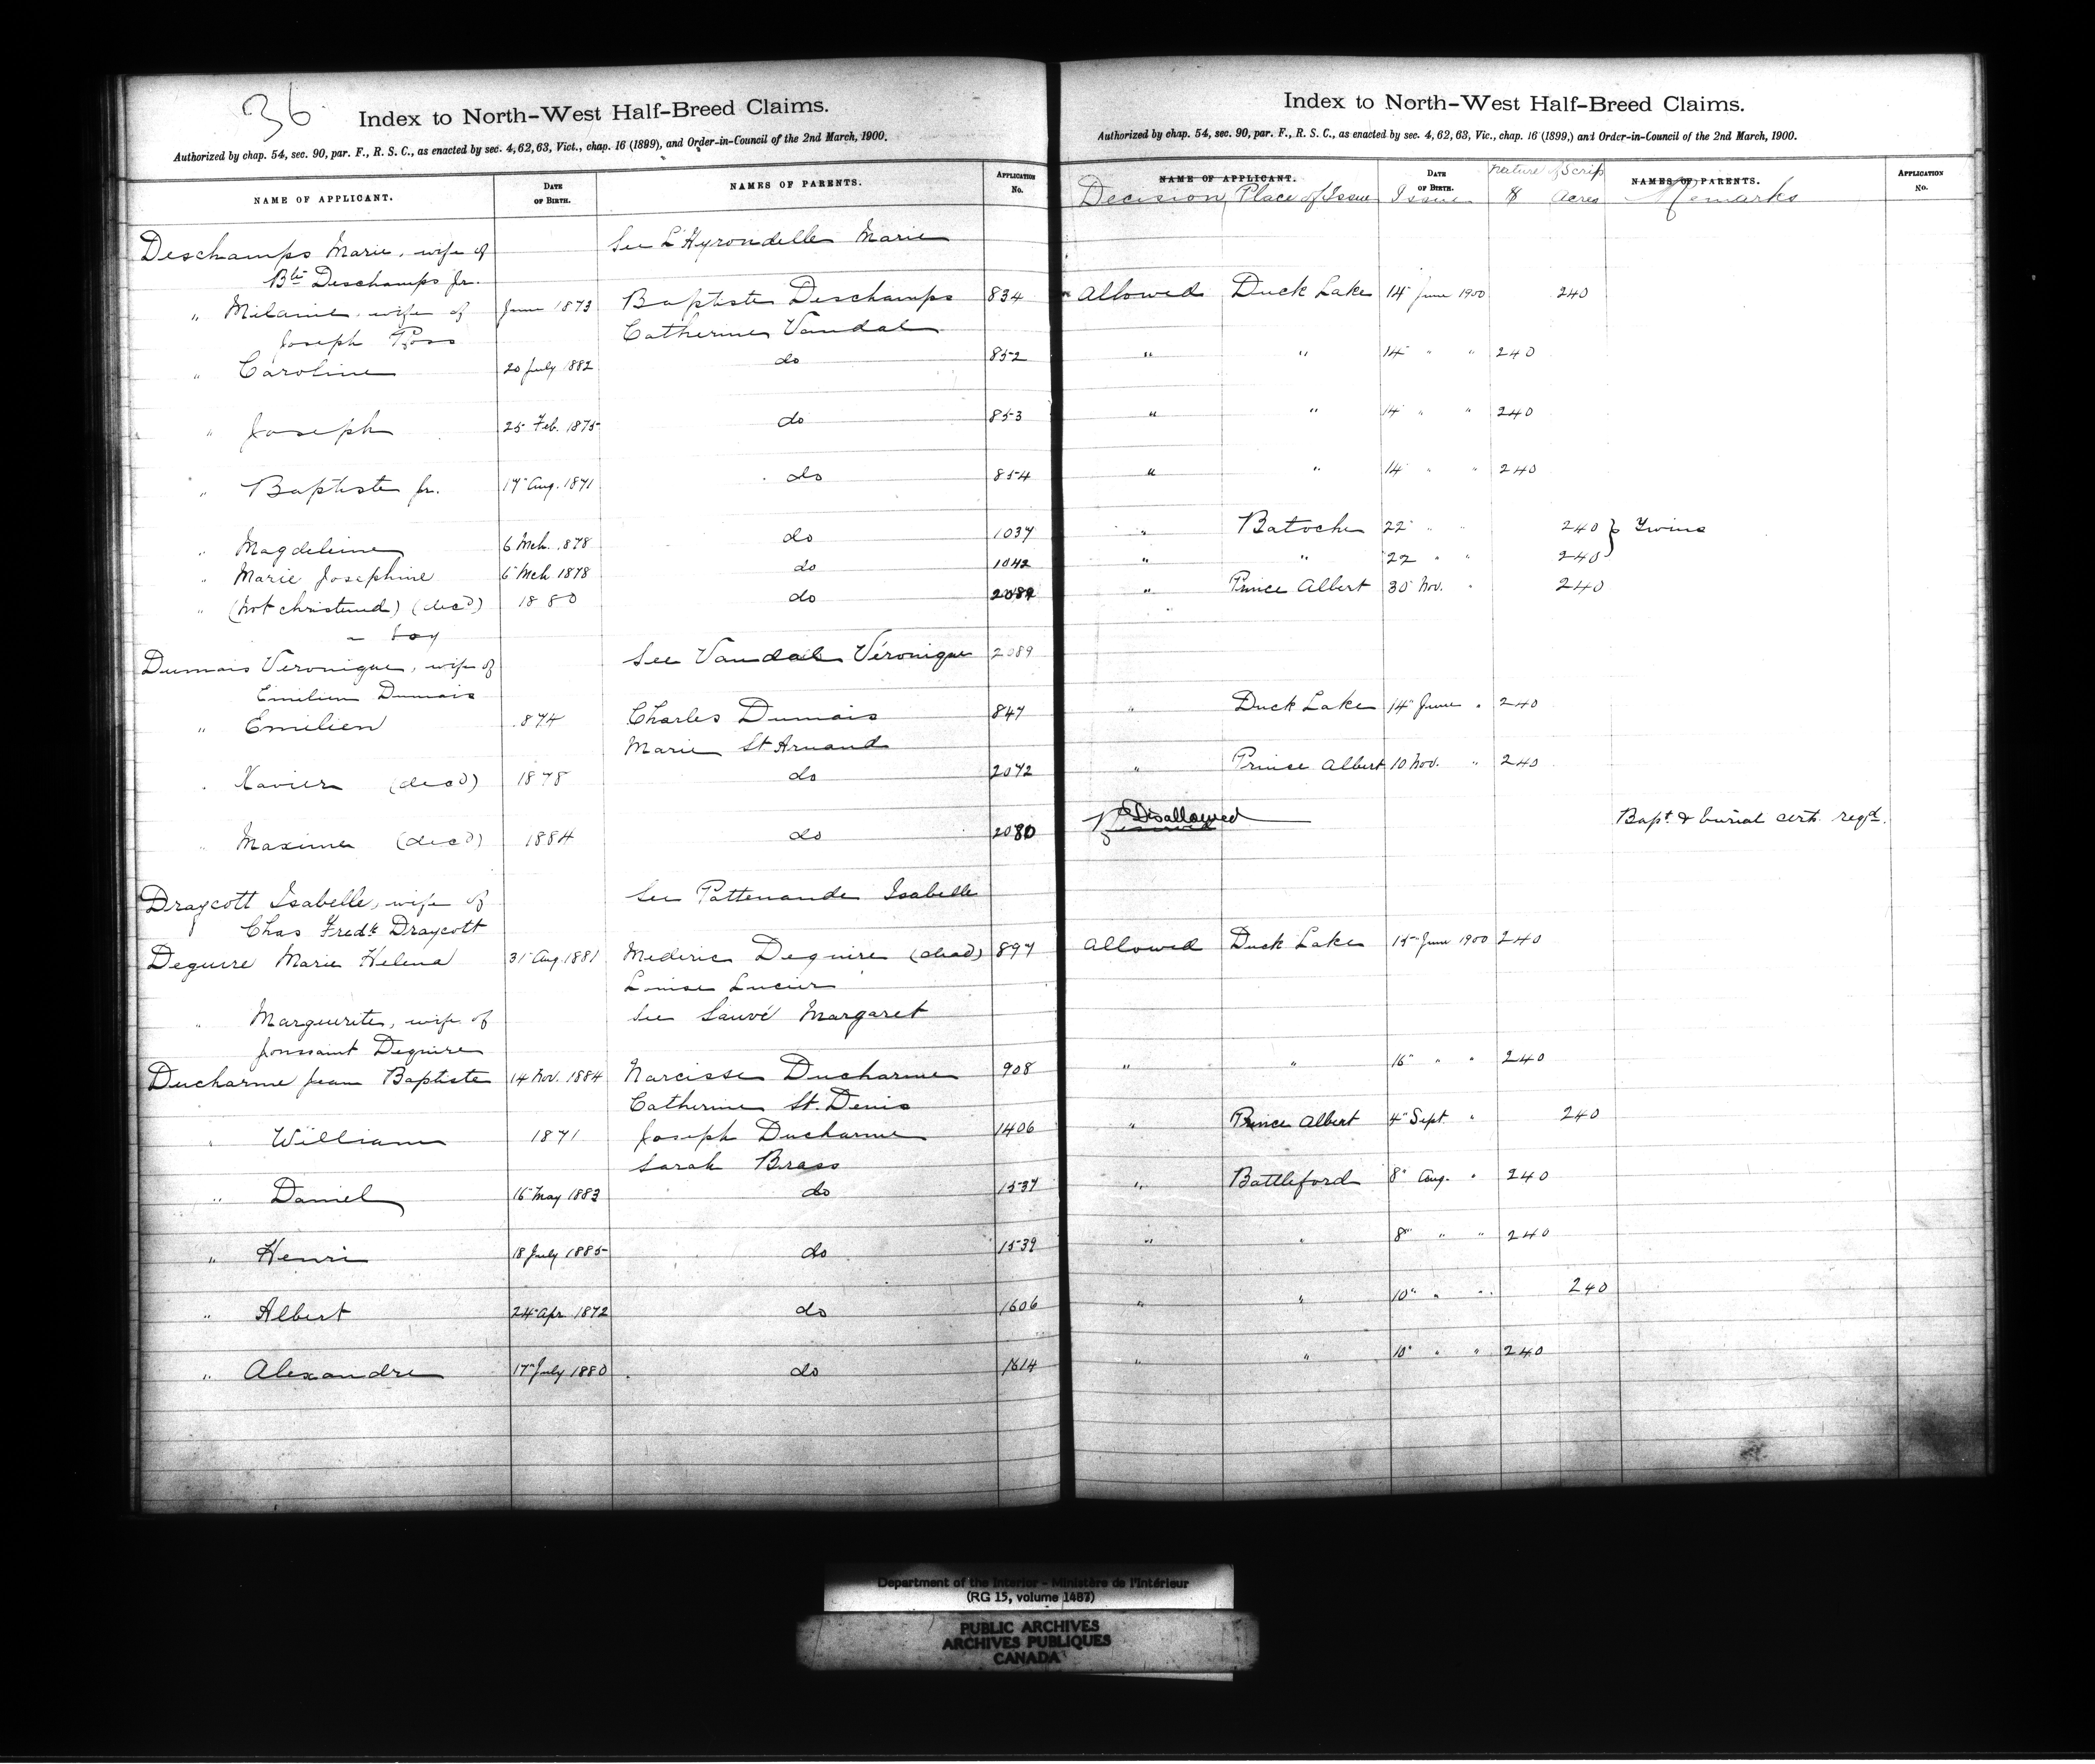 36
Index to North-West Half-Breed Claims.
Authorized by chap. 54, sec. 90, par. F., R. S. C., as enacted by sec. 4, 62, 63, Vict., chap. 16 (1899), and Order-in-Council of the 2nd March, 1900.
NAME OF APPLICANT. DATE OF BIRTH. NAMES OF PARENTS. APPLICATION No.
Deschamps Marie, wife of See L'Hyrondelle Marie
Bte Deschamps Jr.
" Milanie, wife of June 1873 Baptiste Deschamps 834
Joseph Ross Catherine Vandal
" Caroline 20 July 1882 do 852
" Joseph 25 Feb. 1875 do 853
" Baptiste Jr. 17 Aug. 1871 do 854
" Magdeleine 6 Mch. 1878 do 1037
" Marie Josephine 6 Mch 1878 do 1042
" (not christened) (decd) 1880 do
- boy
Dumais Veronique, wife of See Vandal Véronique 2089
Emilien Dumais
" Emilien 1874 Charles Dumais 847
Marie St Arnaud
" Xavier (decd) 1878 do 2072
" Maxime (decd) 1884 do 2080
Draycott Isabelle, wife of See Pattenaude Isabelle
Chas Fredk Draycott
Deguire Marie Helena 31 Aug 1881 Mederic Deguire (dead) 897
Louise Lucier
" Marguerite, wife of See Sauvé Margaret
Toussaint Deguire
Ducharme Jean Baptiste 14 Nov. 1884 Narcisse Ducharme 908
Catherine St. Denis
" William 1871 Joseph Ducharme 1406
Sarah Brass
" Daniel 16 May 1883 do 1537
" Henri 18 July 1885 do 1539
" Albert 24 Apr 1872 do 1606
" Alexandre 17 July 1880 do 1614
Index to North-West Half-Breed Claims.
Authorized by chap. 54, sec. 90, par. F., R. S. C., as enacted by sec. 4, 62, 63, Vic., chap. 16 (1899,) and Order-in-Council of the 2nd March, 1900.
NAME OF APPLICANT. DATE OF BIRTH. Nature of Scrip NAMES OF PARENTS. APPLICATION No.
Decision Place of Issue Issue $ Acres Remarks
Allowed Duck Lake 14 June 1900 240
" " 14 " " 240
" " 14 " " 240
" " 14 " " 240
" Batoche 22 " " 240 } Twins
" " 22 " " 240
" Prince Albert 30 Nov. " 240
" Duck Lake 14 June " 240
" Prince Albert 10 Nov. " 240
Disallowed Bapt. & burial cert. reqd.
Allowed Duck Lake 15 June 1900 240
" " 16 " " 240
" Prince Albert 4 Sept. " 240
" Battleford 8 Aug. " 240
" " 8 " " 240
" " 10 " " 240
" " 10 " " 240
Department of the Interior - Ministère de l'Intérieur
(RG 15, volume 1487)
PUBLIC ARCHIVES
ARCHIVES PUBLIQUES
CANADA